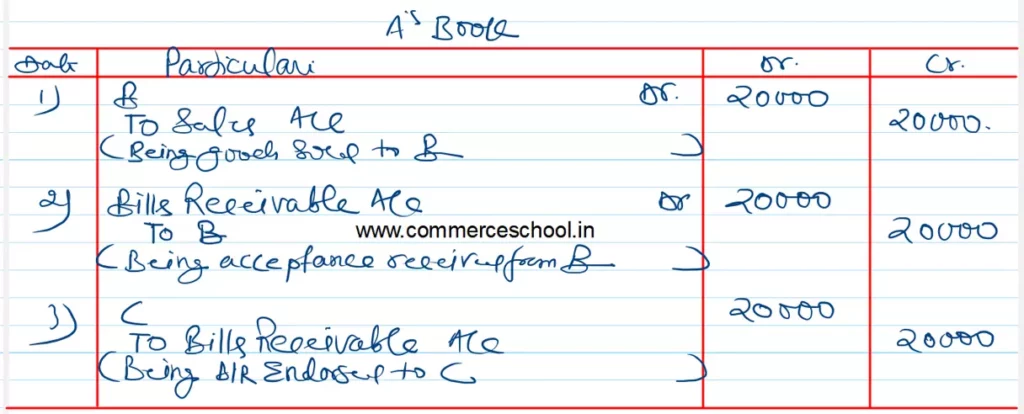 A's Book
Date Particulars Dr. Cr.
1) B Dr. 20000
To Sales A/c 20000.
(Being goods sold to B )
2) Bills Receivable A/c Dr 20000
To B 20000
www.commerceschool.in
(Being acceptance received from B )
3) C 20000
To Bills Receivable A/c 20000
(Being B/R Endorsed to C )